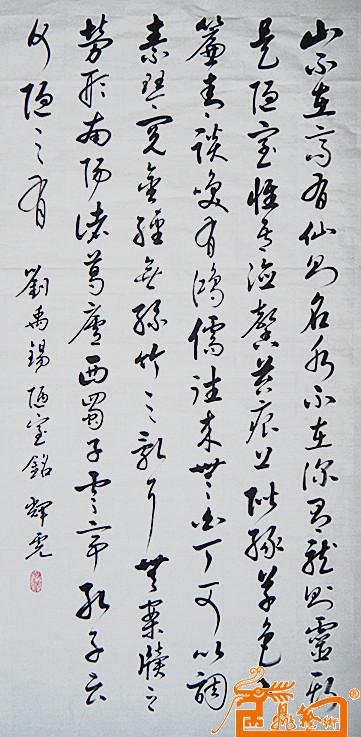 山不在高有仙則名水不在深有龍則靈斯
是陋室惟吾德馨苔痕上階綠草色
簾青談笑有鴻儒往來無白丁可以調
素琴閱金經無絲竹之亂耳無案牘之
勞形南陽諸葛廬西蜀子雲亭孔子云
何陋之有 劉禹錫陋室銘